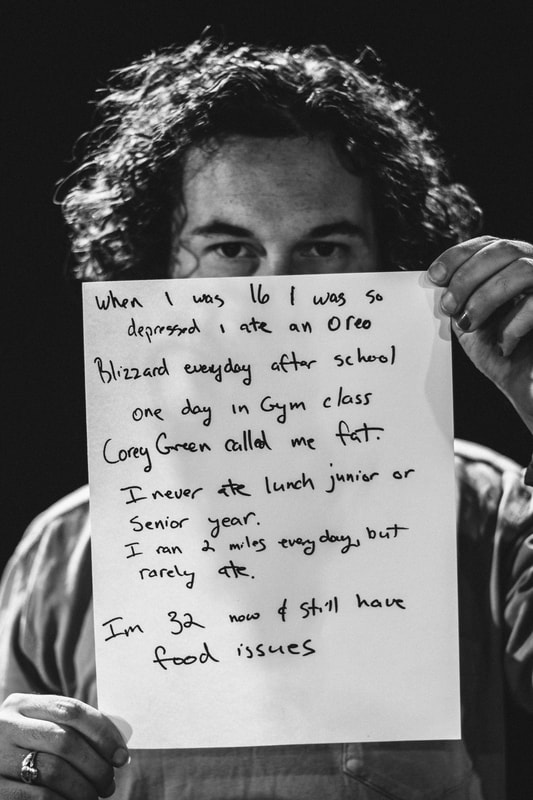 When I was 16 I was so
depressed i ate an Oreo
Blizzard everyday after school
one day in Gym class
Corey Green called me fat.
I never ate lunch junior or
Senior year.
I ran 2 miles everyday, but
rarely ate.
Im 32 now & still have
food issues